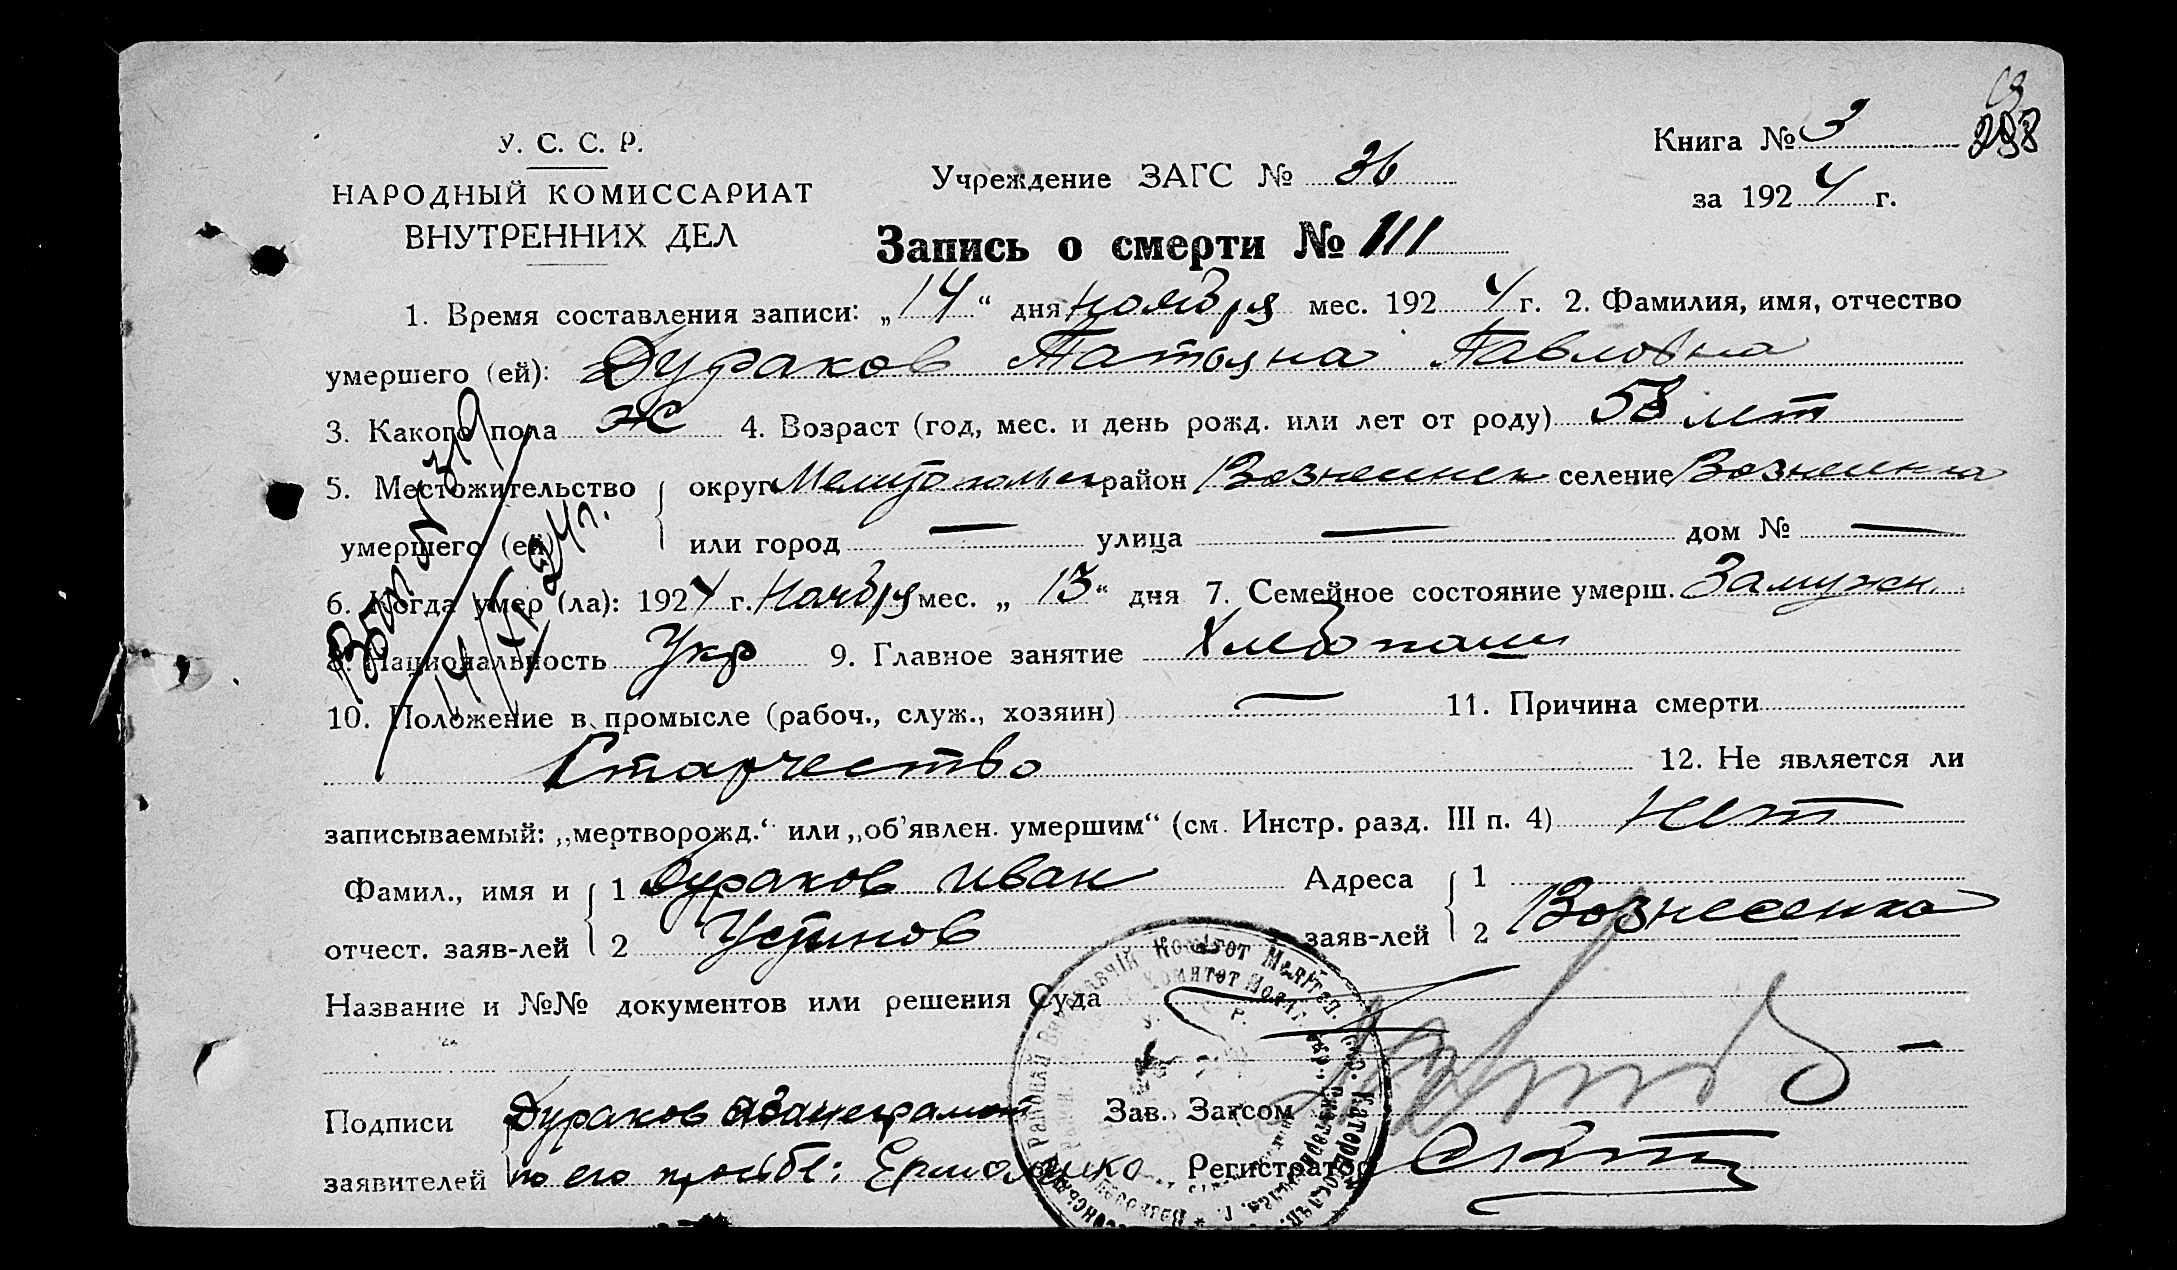 У. С. С. Р.
НАРОДНЫЙ КОМИССАРИАТ
ВНУТРЕННИХ ДЕЛ
Учреждение ЗАГС № 36
Книга № 3
за 1924 г.
Запись о смерти № 111
1. Время составления записи: „14“ дня ноября мес. 1924 г. 2. Фамилия, имя, отчество
умершего (ей): Дураков Татьяна Павловна
3. Какого пола ж 4. Возраст (год, мес. и день рожд. или лет от роду) 58 лет
5. Местожительство округ район Вознесенск селение Вознесенка
умершего (ей) или город — улица — дом № —
6. Когда умер (ла): 1924 г. Ноября мес. „13“ дня 7. Семейное состояние умерш. Замужн.
8. Национальность Укр 9. Главное занятие Хлебопаш
10. Положение в промысле (рабоч., служ., хозяин) — 11. Причина смерти
Старчество 12. Не является ли
записываемый: „мертворожд.“ или „об’явлен. умершим“ (см. Инстр. разд. III п. 4) нет
Фамил., имя и 1 Дураков Иван Адреса 1
отчест. заяв-лей 2 Устинов заяв-лей 2 Вознесенка
Название и №№ документов или решения Суда
Подписи Дураков Зав. Загсом
заявителей по его просьбе: Ермоленко Регистратор